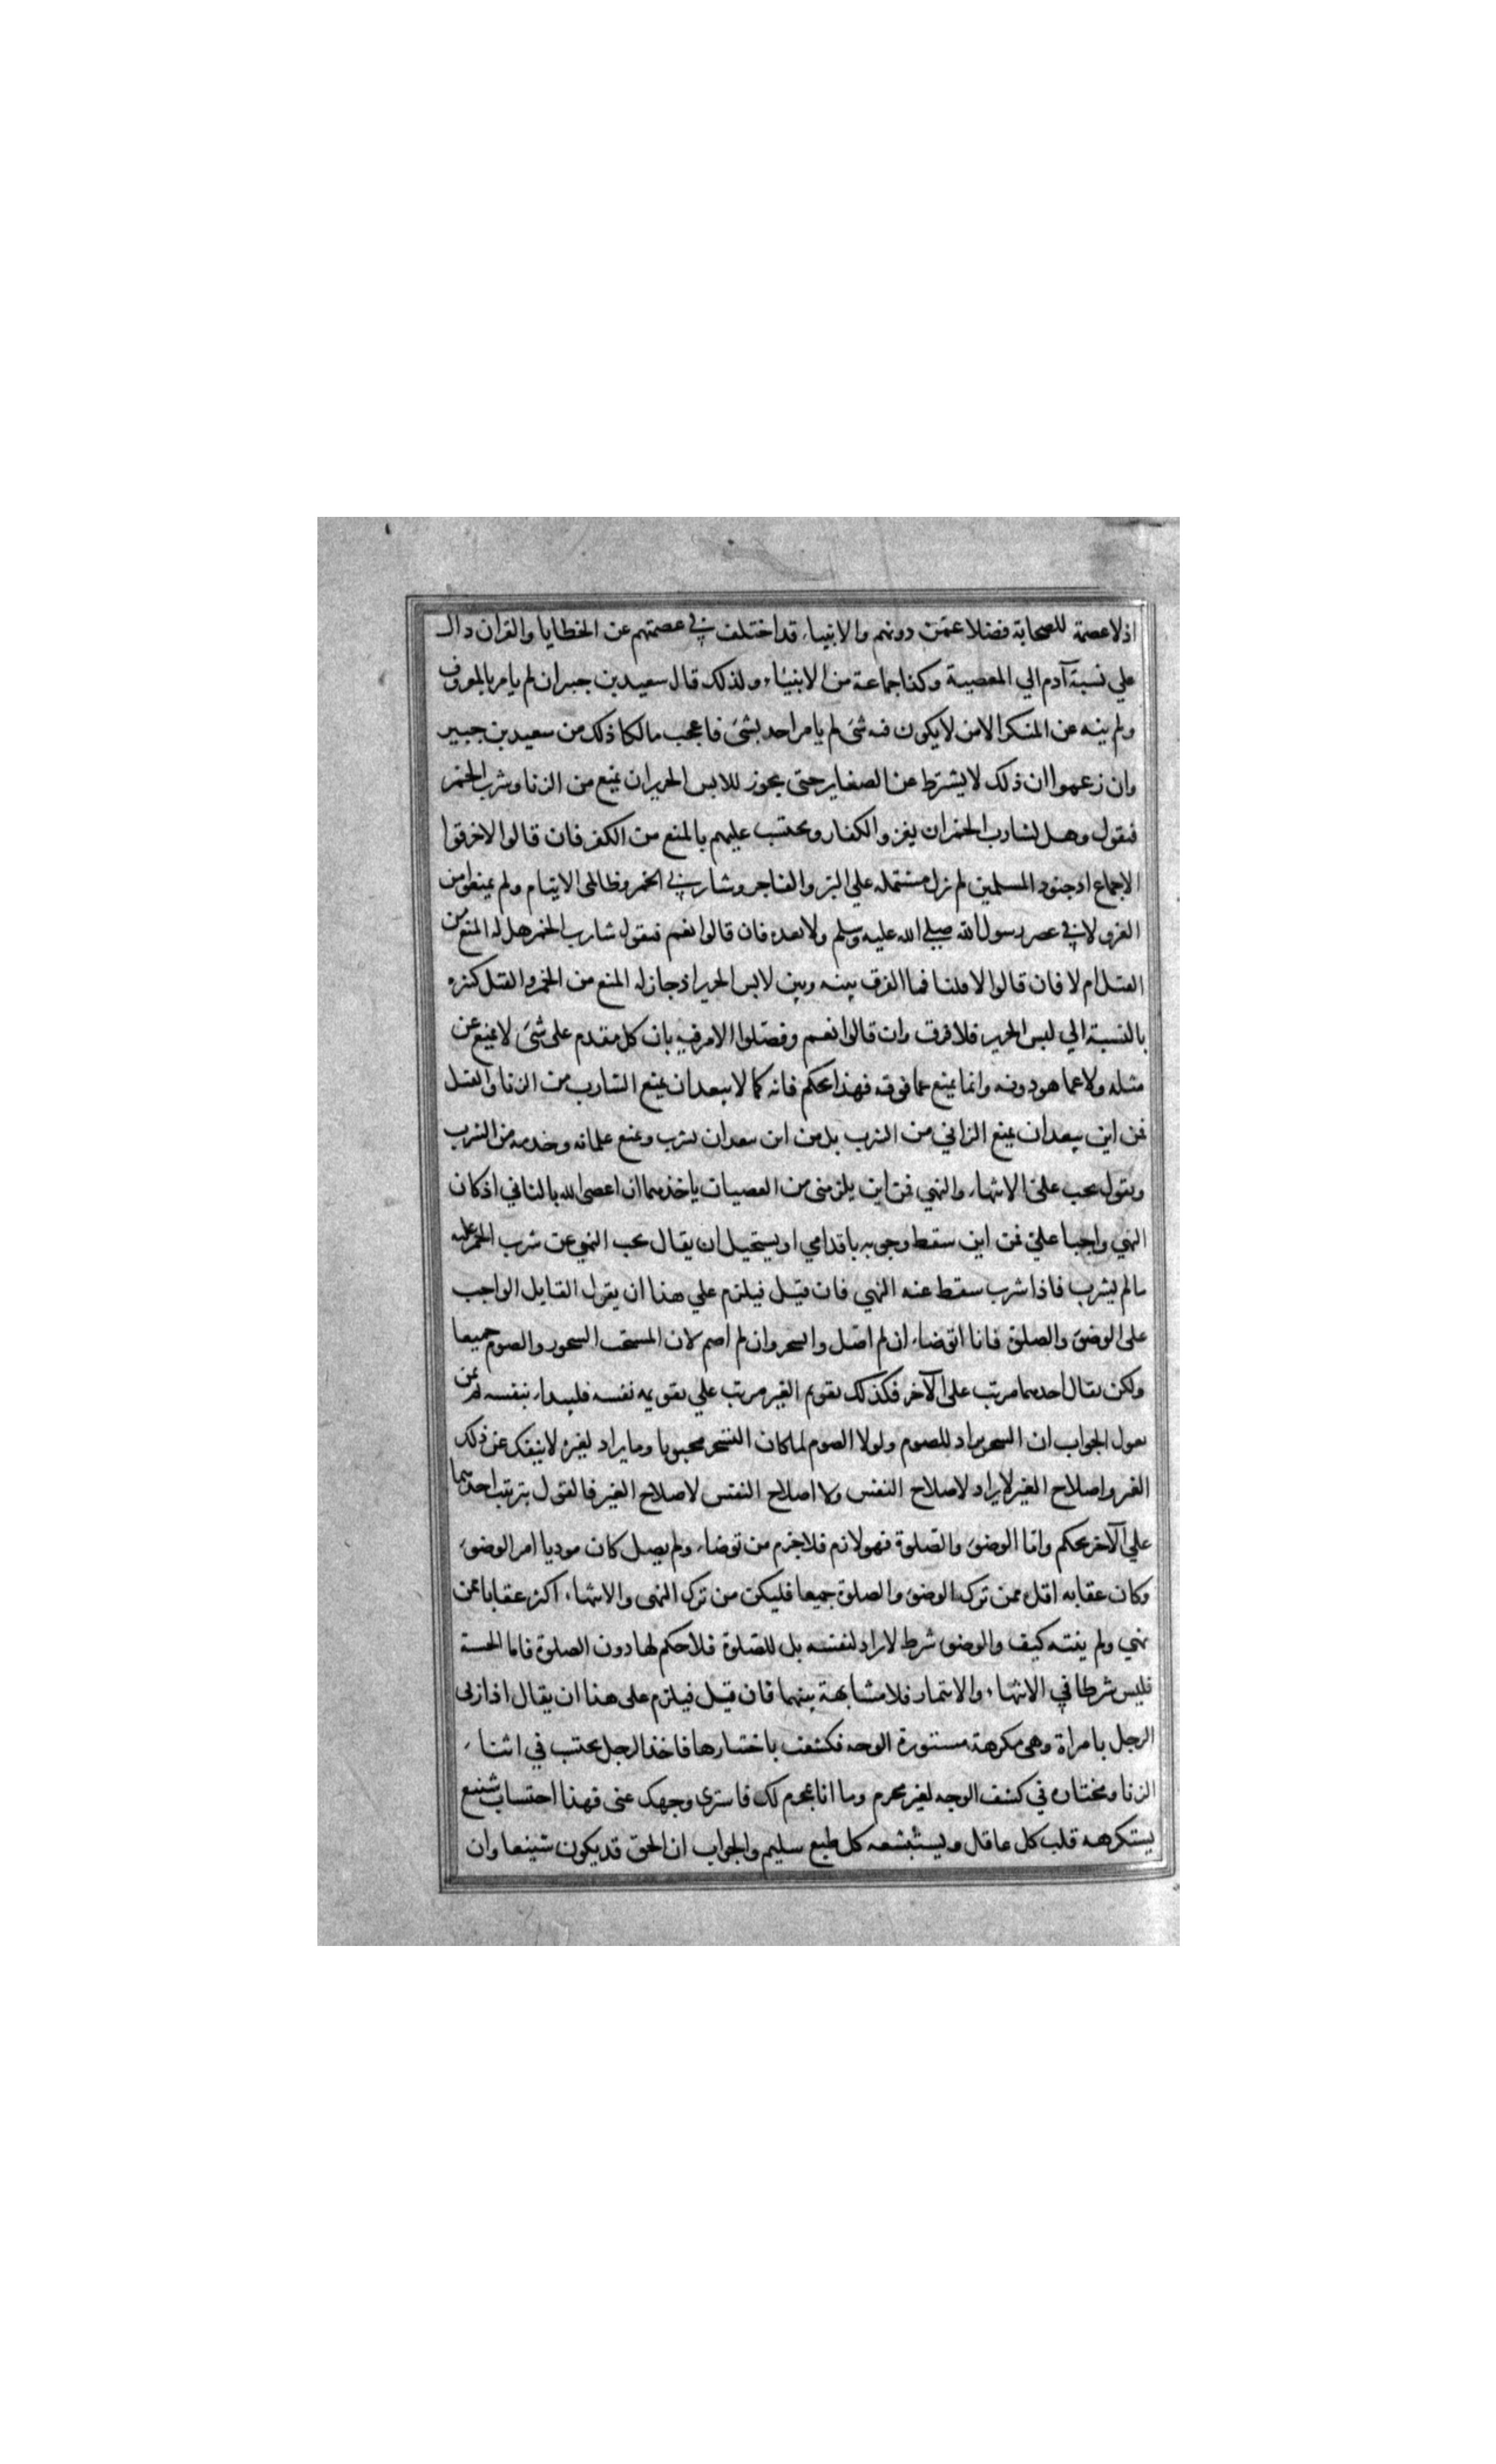 اذ لا عصمة للصحابة فضلا عمّن دونهم والانبياء قد اختلف في عصمتهم عن الخطايا والقران دال
علي نسبة آدم الي المعصية وكذا جماعة من الانبياء ولذلك قال سعيد بن جبير ان لم يامر بالمعروف
ولم ينه عن المنكر الا من لا يكون فيه شئ لم يامر احد بشئ فاعجب مالكا ذلك من سعيد بن جبير
وان زعموا ان ذلك لا يشترط عن الصغاير حتى يجوز للابس الحرير ان يمنع من الزنا وشرب الخمر
فنقول وهل لشارب الخمر ان يغزو الكفار ويحتسب عليهم بالمنع من الكفر فان قالوا لا خرقوا
الاجماع اذ جنود المسلمين لم تزل مشتملة علي البر والفاجر وشاربي الخمر وظالمى الايتام ولم يمنعوا من
الغزو لا في عصر رسول الله صلي الله عليه وسلم ولا بعده فان قالوا نعم فنقول شارب الخمر هل له المنع من
القتل ام لا فان قالوا لا قلنا فما الفرق بينه وبين لابس الحرير اذ جاز له المنع من الخمر والقتل كبيرة
بالنسبة الي لبس الحرير فلا فرق وان قالوا نعم وفصّلوا الامر فيه بان كل مقدم على شئ لا يمنع عن
مثله ولا عما هو دونه وانما يمنع عما فوقه فهذا تحكم فانه كما لا يبعد ان يمنع الشارب من الزنا والقتل
فمن اين يبعد ان يمنع الزاني من الشرب بل من اين يبعد ان يشرب ويمنع غلمانه وخدمه من الشرب
ويقول يجب علىّ الانتهاء والنهي فمن اين يلزمنى من العصيان باحدهما ان اعصى الله بالثاني اذ كان
النهي واجبا علىّ فمن اين سقط وجوبه باقدامي او يستحيل ان يقال يجب النهي عن شرب الخمر عليه
ما لم يشرب فاذا شرب سقط عنه النهي فان قيل فيلزم علي هذا ان يقول القايل الواجب
على الوضوء والصلوة فانا اتوضاء ان لم اصل واتسحر وان لم اصم لان المستحب السحور والصوم جميعا
ولكن يقال احدهما مرتب على الآخر فكذلك تقويم الغير مرتب علي تقويمه نفسه فليبداء بنفسه ثم بمن
يعول الجواب ان التسحر يراد للصوم ولولا الصوم لما كان التسحر محبوبا وما يراد لغيره لا ينفك عن ذلك
الغير واصلاح الغير لا يراد لاصلاح النفس ولا اصلاح النفس لاصلاح الغير فالقول بترتب احدهما
علي الآخر تحكم واما الوضوء والصلوة فهو لازم فلا جرم من توضاء ولم يصل كان موديا امر الوضوء
وكان عقابه اقل ممن ترك الوضوء والصلوة جميعا فليكن من ترك النهى والانتهاء اكثر عقابا ممن
نهي ولم ينته كيف والوضوء شرط لا يراد لنفسه بل للصلوة فلا حكم لها دون الصلوة فاما الحسبة
فليس شرطا في الانتهاء والائتمار فلا مشابهة بينهما فان قيل فيلزم على هذا ان يقال اذا زنى
الرجل بامراة وهى مكرهة مستورة الوجه فكشفت باختيارها فاخذ الرجل يحتسب في اثناء
الزنا ومختارة في كشف الوجه لغير محرم وما انا بمحرم لك فاسترى وجهك عنى فهذا احتساب شنيع
يستكرهه قلب كل عاقل ويستبشعه كل طبع سليم والجواب ان الحق قد يكون شنيعا وان